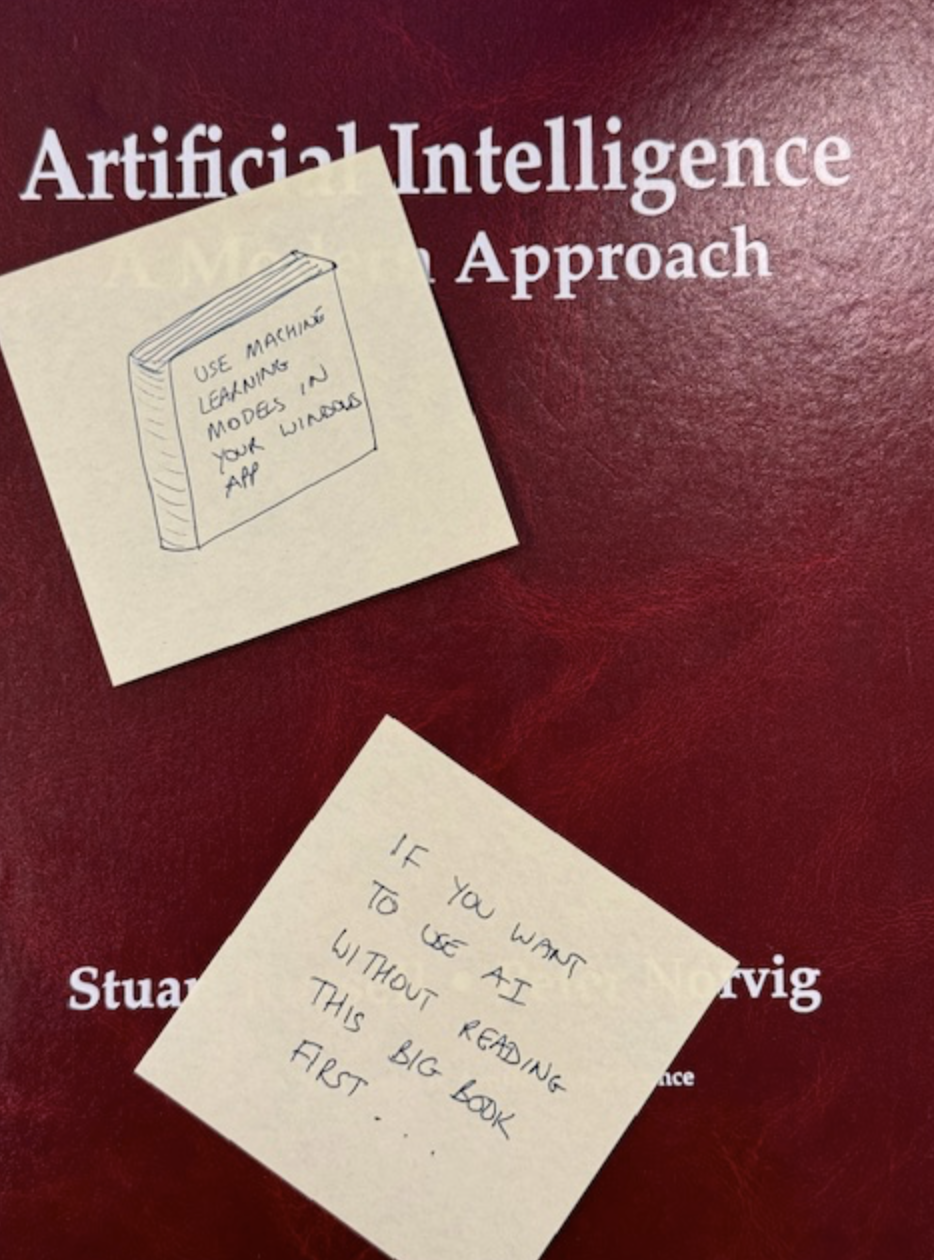 Artificial Intelligence
A Modern Approach
USE MACHINE
LEARNING
MODELS IN
YOUR WINDOWS
APP
IF YOU WANT
TO USE AI
WITHOUT READING
THIS BIG BOOK
FIRST...
Stuart Russell • Peter Norvig